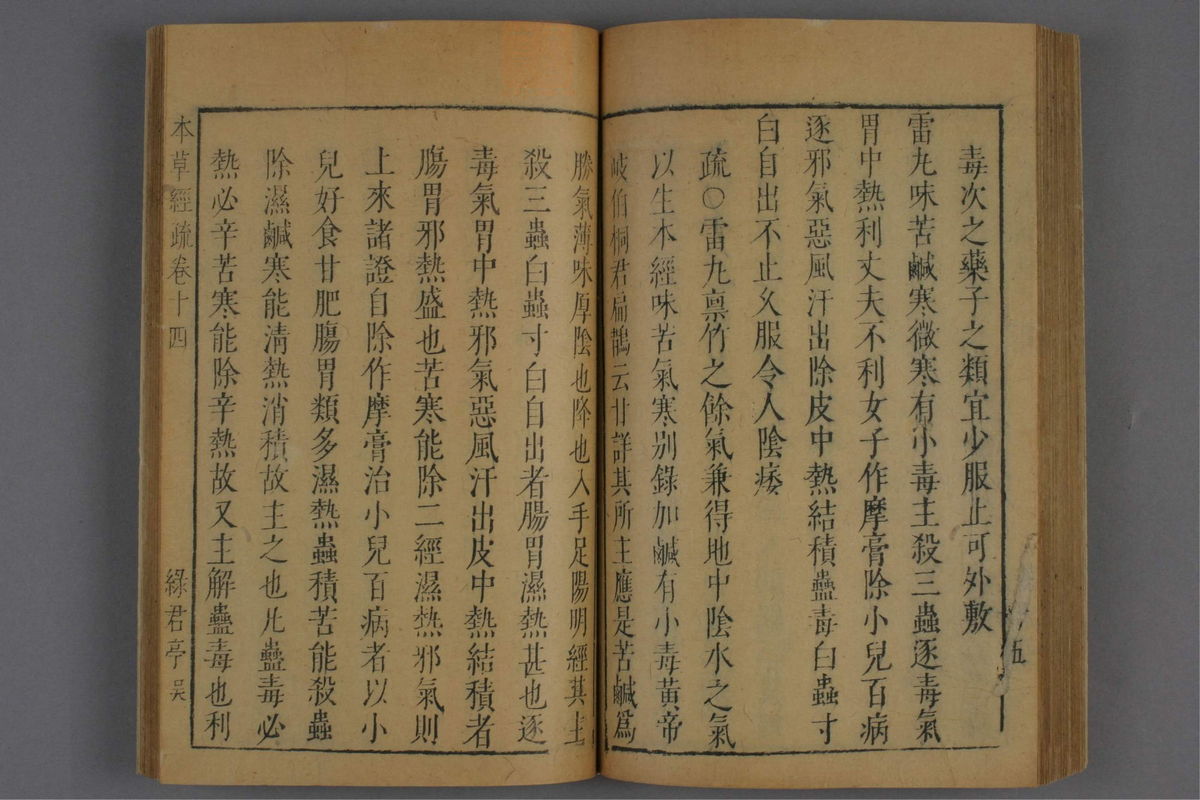 毒次之藥子之類宜少服止可外敷
雷丸味苦鹹寒微寒有小毒主殺三蟲逐毒氣
胃中熱利丈夫不利女子作摩膏除小兒百病
逐邪氣惡風汗出除皮中熱結積蠱毒白蟲寸
白自出不止久服令人陰痿
疏○雷丸禀竹之餘氣兼得地中陰水之氣
以生本經味苦氣寒别錄加鹹有小毒黃帝
岐伯桐君扁鵲云甘詳其所主應是苦鹹爲
五
勝氣薄味厚陰也降也入手足陽明經其主
殺三蟲白蟲寸白自出者腸胃濕熱甚也逐
毒氣胃中熱邪氣惡風汗出皮中熱結積者
膓胃邪熱盛也苦寒能除二經濕熱邪氣則
上來諸證自除作摩膏治小兒百病者以小
兒好食甘肥腸胃類多濕熱蟲積苦能殺蟲
除濕鹹寒能淸熱消積故主之也凡蠱毒必
熱必辛苦寒能除辛熱故又主解蠱毒也利
本草經疏卷十四
綠君亭
吴